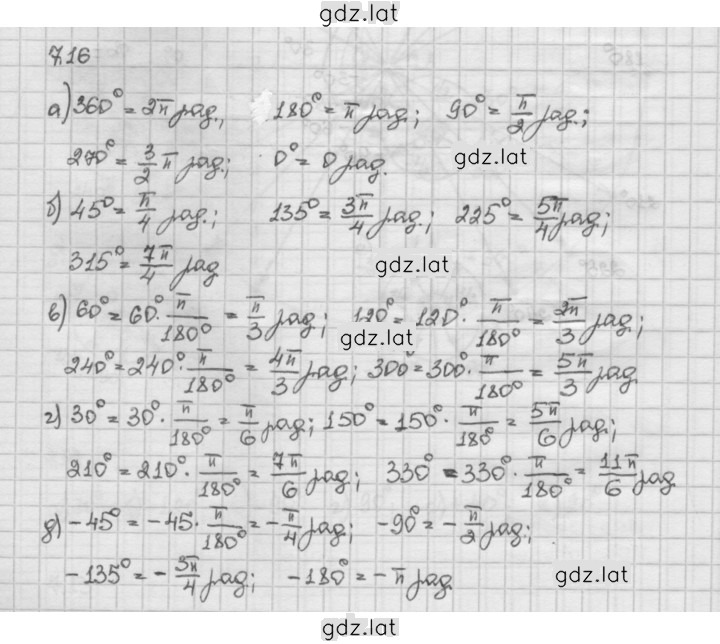 gdz.lat
7.16
а) 360° = 2π рад., 180° = π рад.; 90° = π/2 рад.;
270° = 3/2 π рад.; 0° = 0 рад. gdz.lat
б) 45° = π/4 рад.; 135° = 3π/4 рад.; 225° = 5π/4 рад.;
315° = 7π/4 рад gdz.lat
в) 60° = 60 · π/180° = π/3 рад; 120° = 120° · π/180° = 2π/3 рад.;
gdz.lat
240° = 240° · π/180° = 4π/3 рад; 300° = 300° · π/180° = 5π/3 рад
г) 30° = 30° · π/180° = π/6 рад; 150° = 150° · π/180° = 5π/6 рад.;
210° = 210° · π/180° = 7π/6 рад; 330° = 330° · π/180° = 11π/6 рад
д) -45° = -45 · π/180° = -π/4 рад; -90° = -π/2 рад.;
-135° = -3π/4 рад; -180° = -π рад gdz.lat
gdz.lat